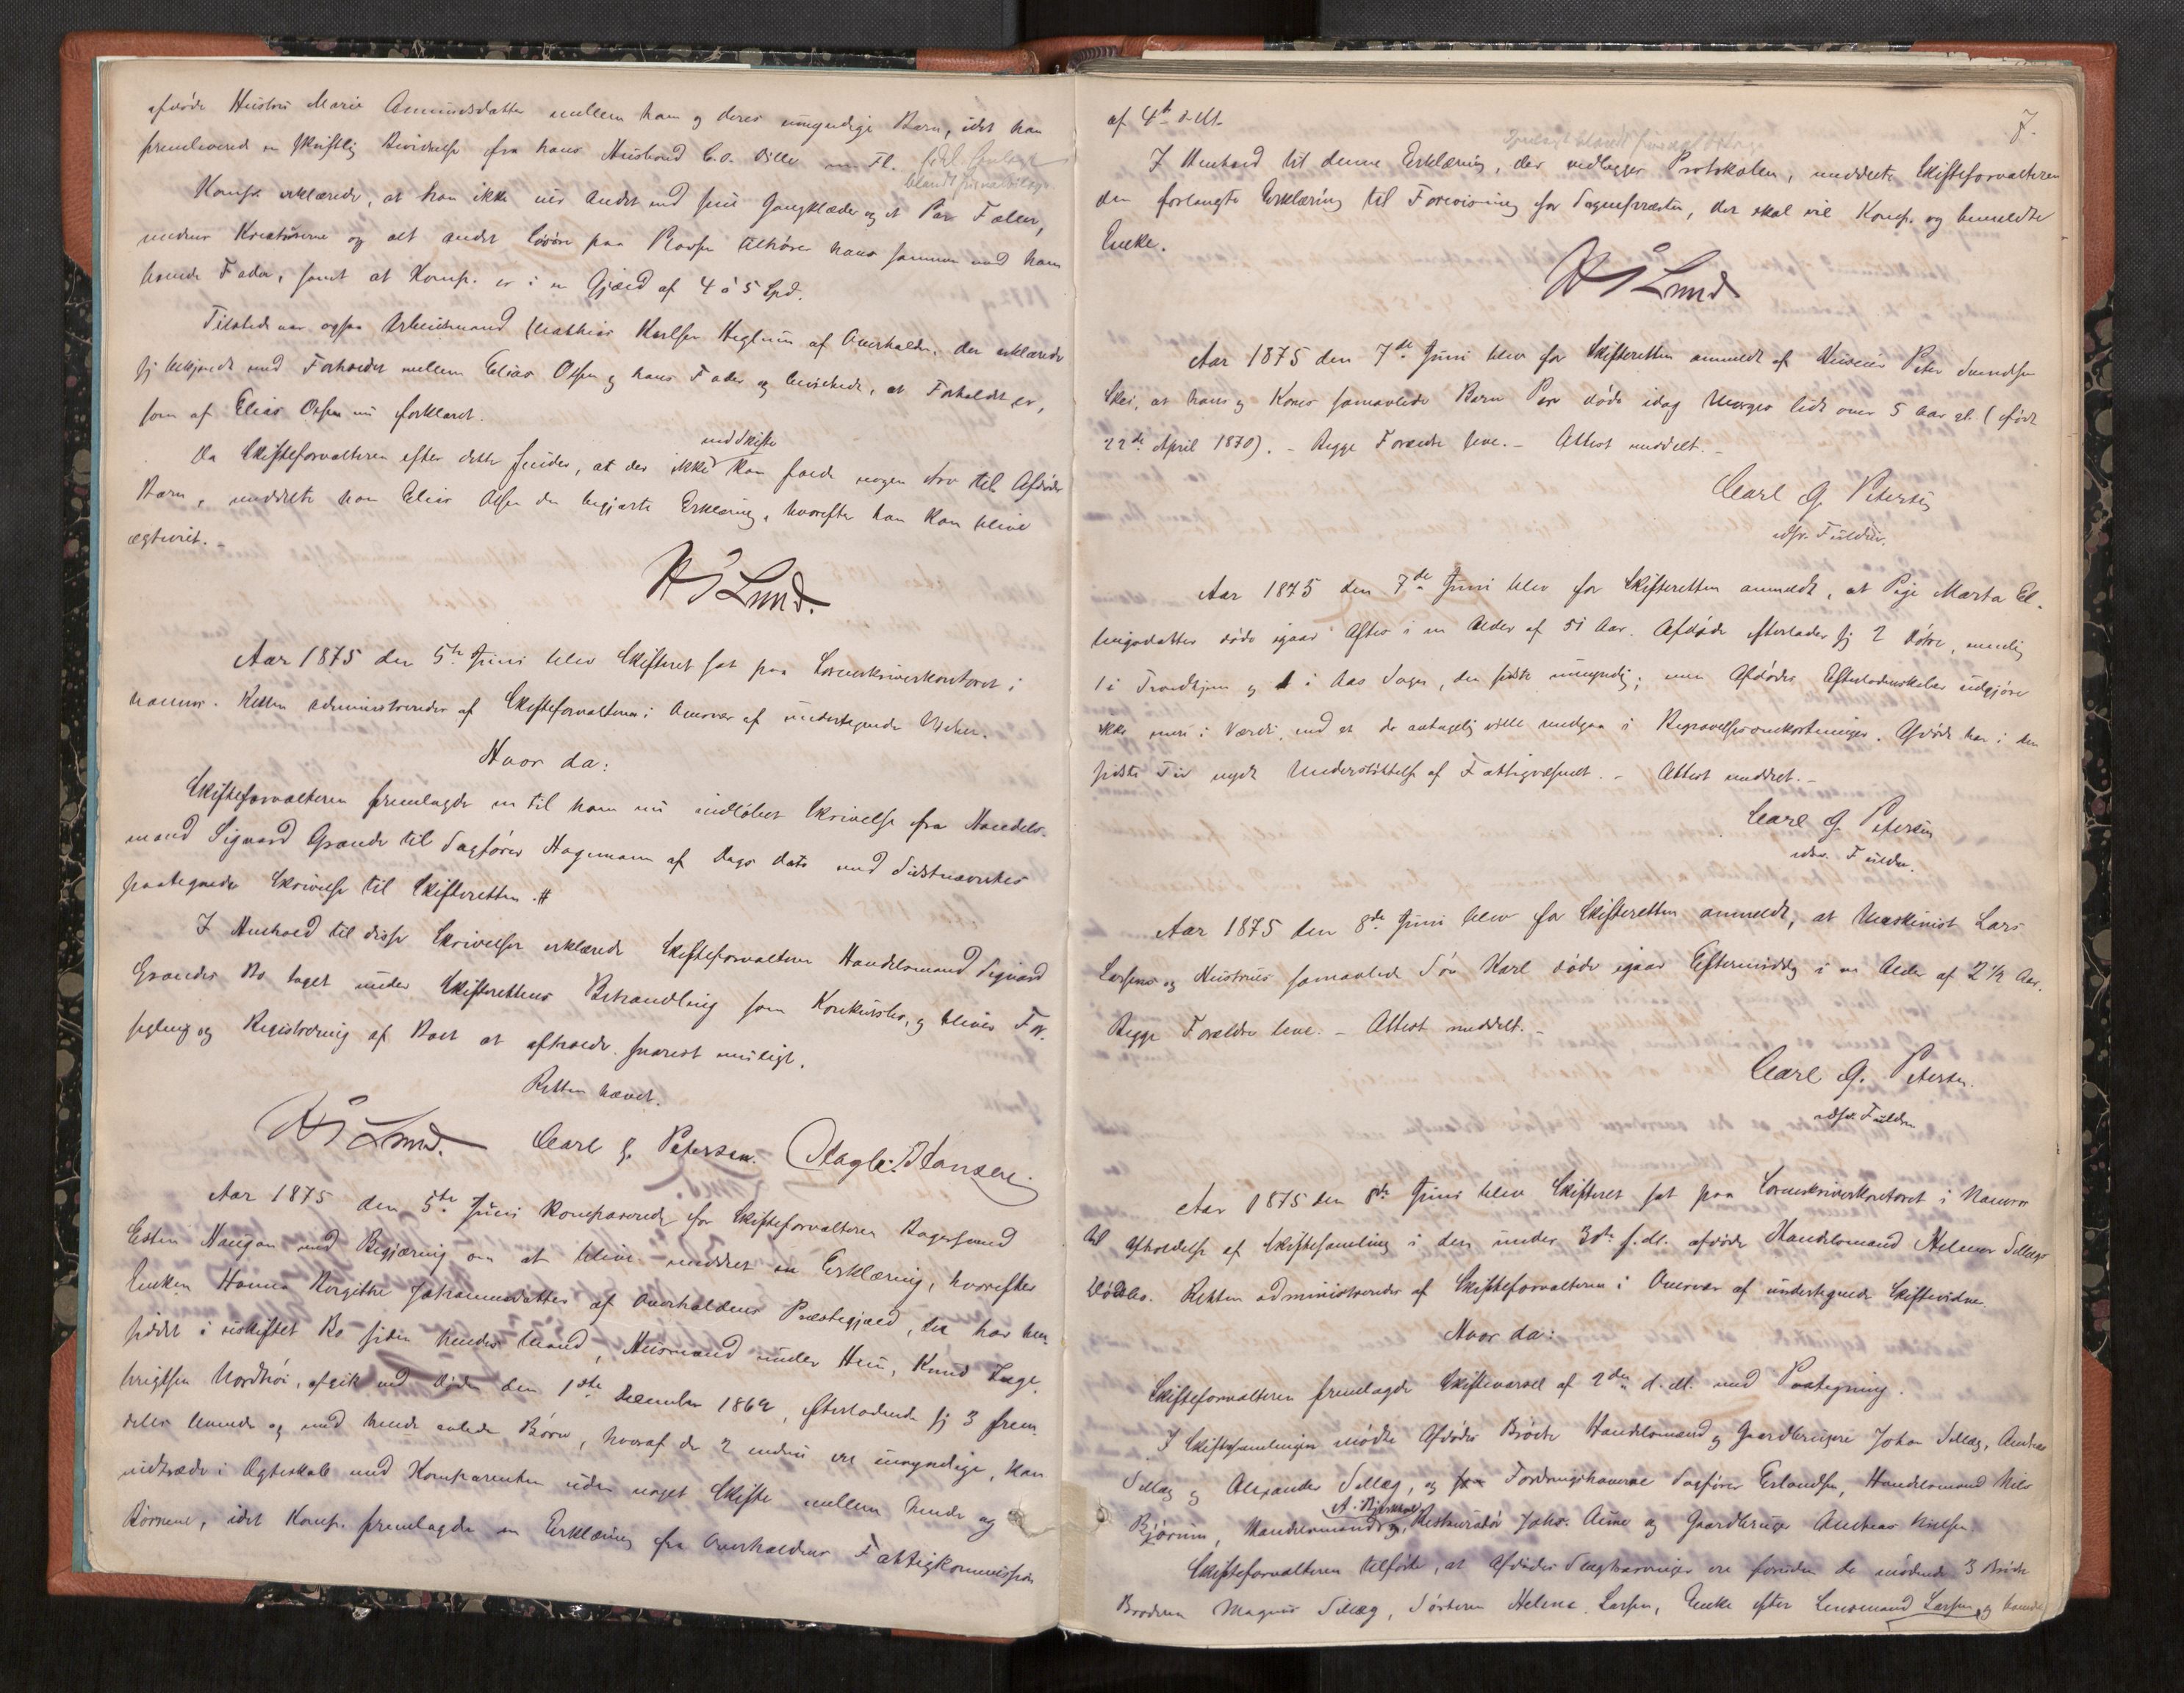 afdøde Hustru Marie Amundsdatter mellem ham og deres umyndige Barn, idet han
fremleverede en skriftlig Bevidnelse fra hans Husbond C. O. Dille
blandt
Komp. erklærede, at han ikke eier Andet end sine Gangklæder og et Par Faler,
medens Kreaturerne og alt andet Løsøre paa Pladsen tilhører hans sammen med ham
boende Fader, samt at Komp. er i en Gjæld af 4 à 5 Spd.
Tilstede var ogsaa Arbeidsmand Mathias Karlsen Heglum af Overhalden, der erklærede
sig bekjendt med Forholdet mellem Elias Olsen og hans Fader og bevidnede, at Forholdet er,
som af Elias Olsen nu forklaret.
ved Skifte
Da Skifteforvalteren efter dette finder, at der ikke kan falde nogen Arv til Afdødes
Barn, meddelte han Elias Olsen den begjærte Erklæring, hvorefter han kan blive
ægteviet. -
H S Lund.
Aar 1875 den 5te Juni blev Skifteret sat paa Sorenskriverkontoret i
Namsos. Retten administreredes af Skifteforvalteren i Overvær af undertegnede Vidner.
Hvor da:
Skifteforvalteren fremlagde en til ham nu indløbet Skrivelse fra Handels-
mand Sigvard Grande til Sagfører Hagemann af Dags Dato med Sidstnævntes
paategnede Skrivelse til Skifteretten. #
I Henhold til disse Skrivelser erklærede Skifteforvalteren Handelsmand Sigvard
Grandes Bo taget under Skifterettens Behandling som Konkursbo, og bliver For-
segling og Registrering af Boet at afholde snarest muligt.
Retten hævet.
H S Lund. Carl G. Petersen. Hansen.
Aar 1875 den 5te Juni komparerede for Skifteforvalteren
Esten Haugan med Begjæring om at blive meddelt en Erklæring, hvorefter
Enken Hanna Bergithe Johannesdatter af Overhaldens Præstegjæld, der har hen-
siddet i uskiftet Bo siden hendes Mand, Husmand under Hun, Knud Inge-
brigtsen Nordhøi, afgik ved Døden den 1ste December 1869, efterladende sig 3 frem-
deles levende og med hende avlede Børn, hvoraf de 2 endnu ere umyndige, kan
indtræde i Ægteskab med Komparenten uden noget Skifte mellem hende og
Børnene, idet Komp. fremlagde en Erklæring fra Overhaldens Fattigkommission
7.
af 4de d. Mt.
I Henhold til denne Erklæring, der vedlægges Protokolen, meddeelte Skifteforvalteren
den forlangte Erklæring til Forevisning for Sognepræsten, der skal vie Komp. og bemeldte
Enke.
H S Lund
Aar 1875 den 7de Juni blev for Skifteretten anmeldt af Huseier Peter Svendsen
Skei, at hans og Kones samavlede Barn Per døde idag Morges lidt over 5 Aar gl. (født
22de April 1870). - Begge Forældre leve. - Attest meddelt. -
Carl G. Petersen
edsv. Fuldm.
Aar 1875 den 7de Juni blev for Skifteretten anmeldt, at Pige Marta El-
lingsdatter døde igaar Aftes i en Alder af 51 Aar. Afdøde efterlader sig 2 Døtre, nemlig
1 i Trondhjem og 1 i Aas Sogn, den sidste umyndig; men Afdødes Efterladenskaber udgjøre
ikke mere i Værdi, end at de antagelig ville medgaa i Begravelsesomkostninger. Afdøde har i den
sidste Tid nydt Understøttelse af Fattigvæsnet. - Attest meddelt. -
Carl G. Petersen
edsv. Fuldm.
Aar 1875 den 8de Juni blev for Skifteretten anmeldt, at Maskinist Lars
Larsens og Hustrues samavlede Søn Karl døde igaar Eftermiddag i en Alder af 2 1/2 Aar.
Begge Forældre leve. - Attest meddelt. -
Carl G. Petersen.
edsv. Fuldm
Aar 1875 den 8de Juni blev Skifteret sat paa Sorenskriverkontoret i Namsos
til Afholdelse af Skiftesamling i den under 30te f. Mt. afdøde Handelsmand Helmer Sellægs
Dødsbo. Retten administreredes af Skifteforvalteren i Overvær af undertegnede Skiftevidner.
Hvor da:
Skifteforvalteren fremlagde Skiftevarsel af 2den d. Mt. med Paategning.
I Skiftesamlingen mødte Afdødes Brødre Handelsmand og Gaardbrugere Johan Sellæg, Andreas
Sellæg og Alexander Sellæg, og Fordringshaverne Sagfører Erlandsen, Handelsmand Nils
A.
Bjørum, Handelsmand og Restauratør Johs. Aune og Gaardbruger Andreas Nielsen.
Skifteforvalteren tilførte, at Afdødes Slægtsarvinger ere foruden de mødende 3 Brødre
Broderen Magnus Sellæg, Søsteren Helena Larsen, Enke efter Lensmand Larsen, og